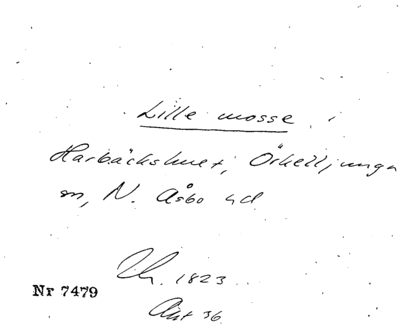 Lille mosse,
Harbäckshult, Örkelljunga
sn, N. Åsbo hd
Ktr. 1823
Nr 7479
Akt 36